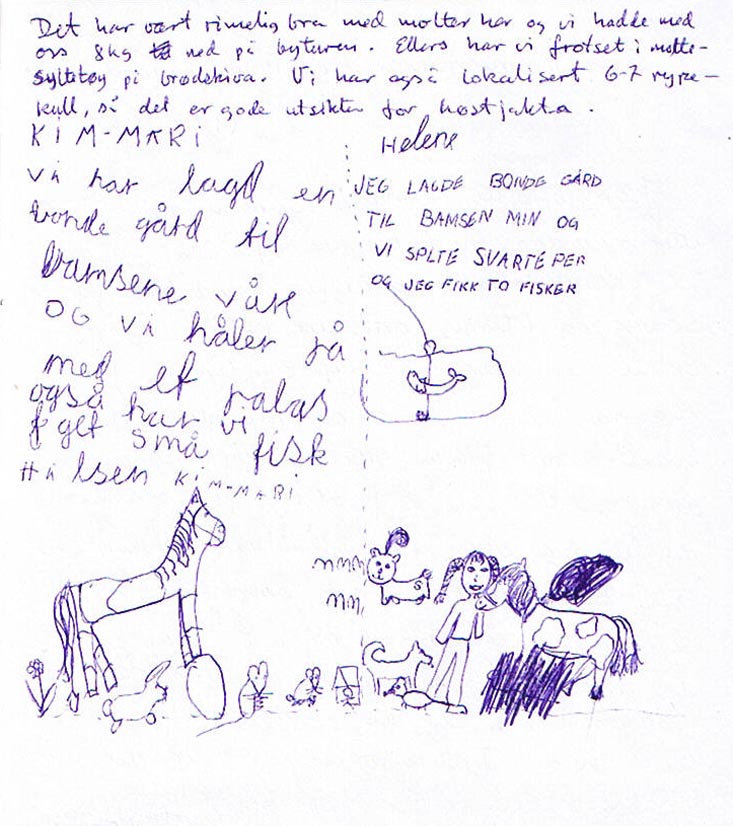 Det har vært rimelig bra med molter her og vi hadde med
oss 8kg ned på byturen. Ellers har vi frotset i molte-
syltetøy på brødskiva. Vi har også lokalisert 6-7 rype-
kull, så det er gode utsikter for høstjakta.
KIM-MARI
vi har lagd en
bonde gård til
bamsene våre
OG vi håler på
med et palas
også har vi
f get små fisk
Hilsen KIM-MARI
Helene
JEG LAGDE BONDE GÅRD
TIL BAMSEN MIN OG
VI SPLTE SVARTE PER
OG JEG FIKK TO FISKER
mmm
mm